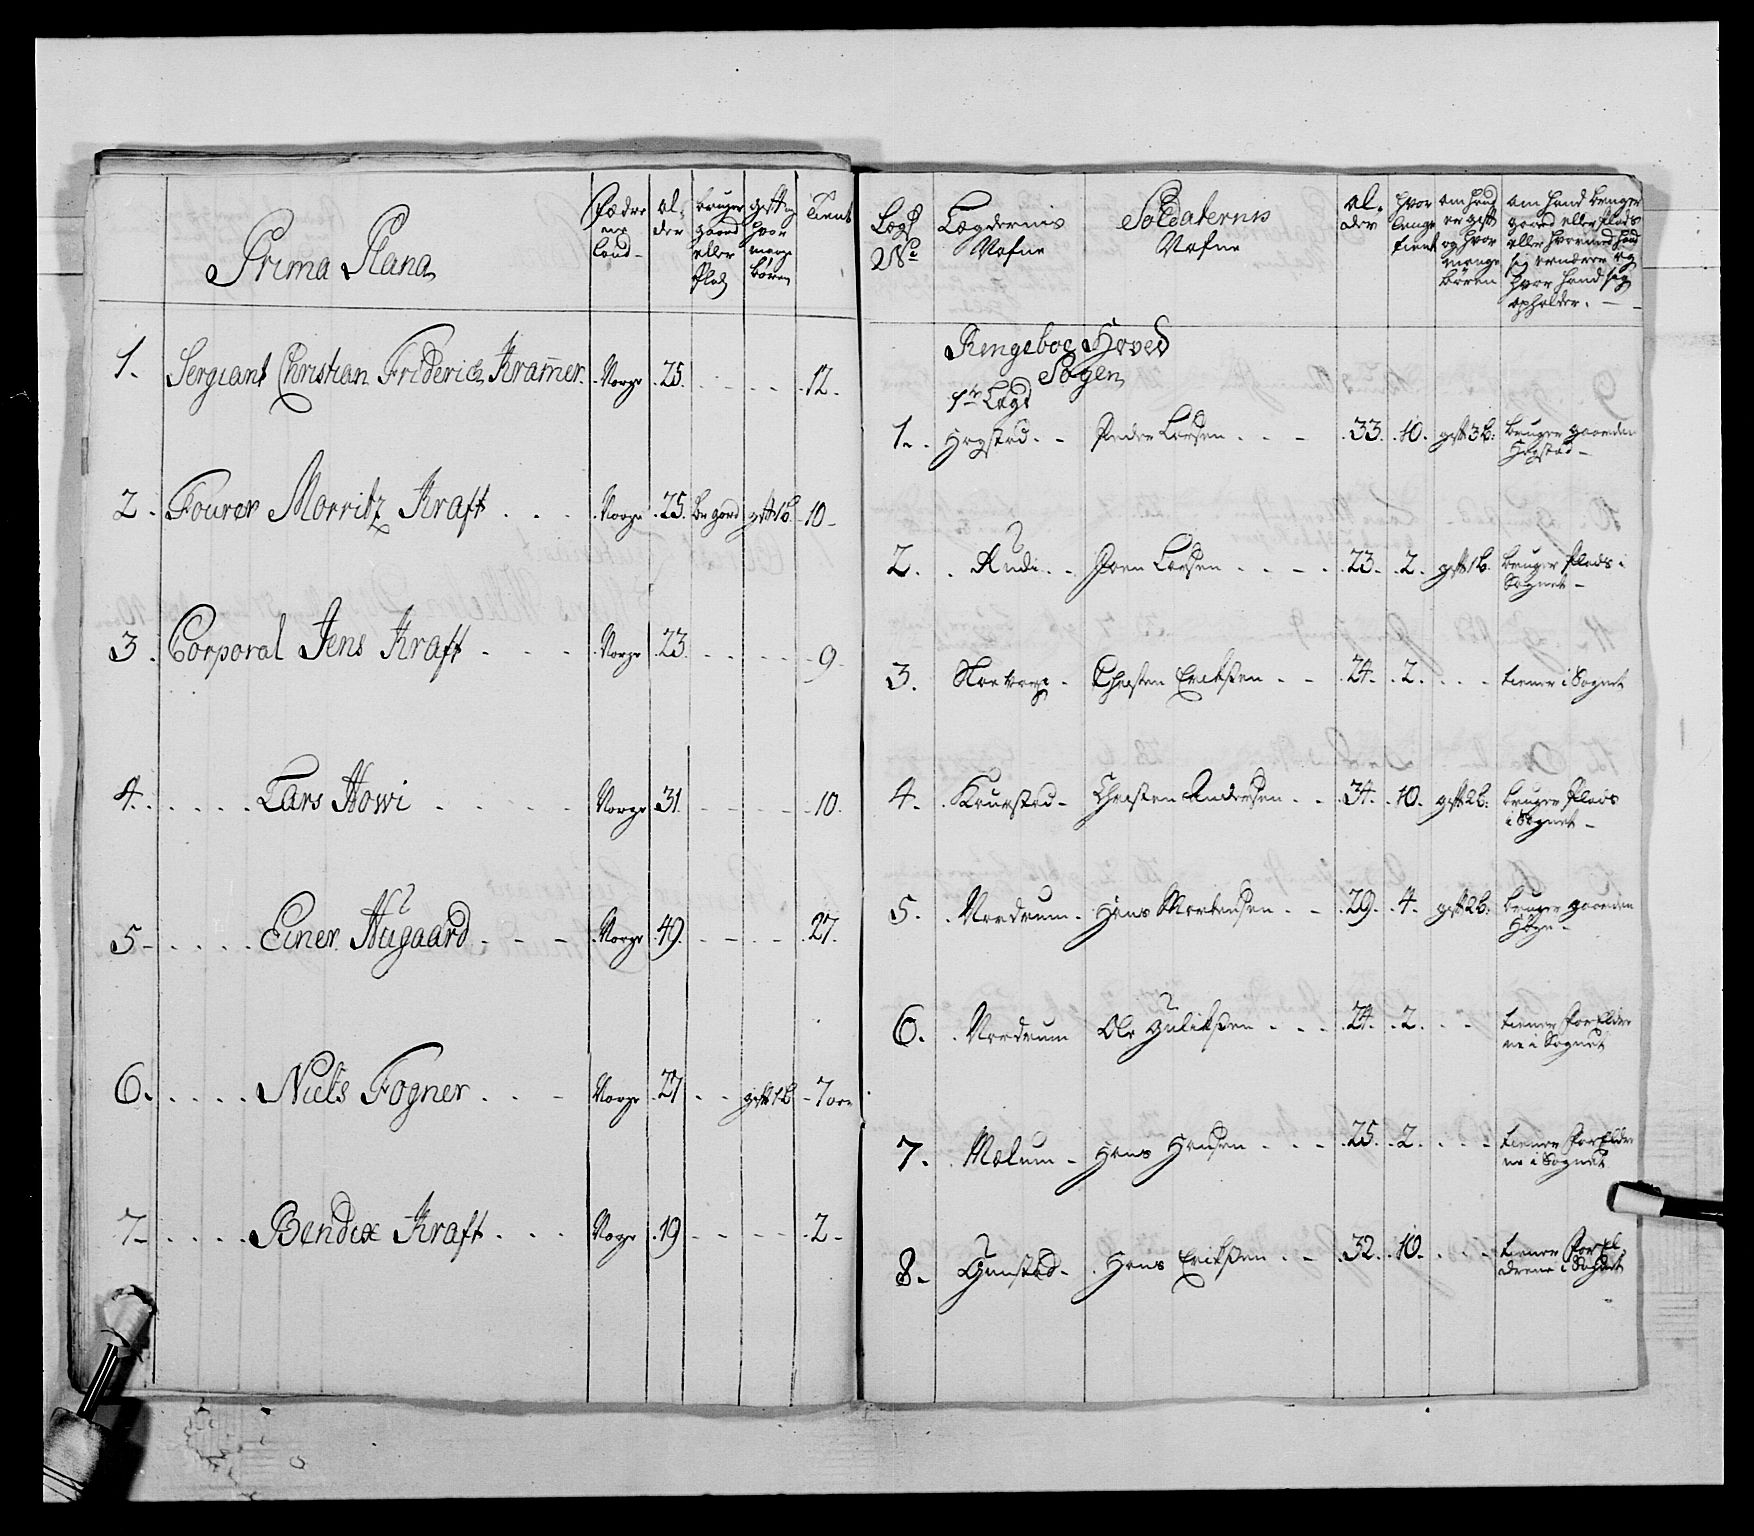 Prima Plana
Fædre
ne
land
al-
der
bruger
gaard
eller
Plads
gift og
hvor
mange
børn
Tient
1. Sergiant Christian Friderich Kramer. Norge 25. 12.
2. Fourer Morritz Kraft Norge 25. br gard gift 1 b. 10
3. Corporal Jens Kraft Norge 23. 9
4. Lars Howi Norge 31. 10.
5. Einer Hügaard Norge 49. 27.
6. Niels Fogner Norge 27 gift 1 b. 7
7. Bendix Kraft Norge 19 2
Lægd
No
Lægdernis
Nafne
Soldaternis
Nafne
al-
der
hvor
længe
tient
om hand
er gift
og hvor
mange
børen
om hand bruger
gaard eller Plads
eller hvormed hand
sig ernærer og
hvor hand sig
opholder.
Ringeboe Hoved
Sogen
1te Lægd
1. Hogstad Peder Larsen 33. 10. gift 3 b. bruger gaarden
Hogstad
2. Rudi Joen Larsen 23. 2. gift 1 b. bruger Plads i
Sognet
3. Christen Eriksen 24. 2. tiener i Sognet
4. Christen Andersen 34. 10. gift 2 b. bruger Plads
i Sognet
5. Nordrum Hans Mortensen 29. 4. gift 2 b. bruger gaarden
6. Nordrum Ole 24. 2. tiener Forældre
ne i Sognet
7. Mælum Hans Hansen 25. 2. tiener Forældre
ne i Sognet
8. Gunstad Hans Eriksen 32. 10. tiener Foræl
drene i Sognet